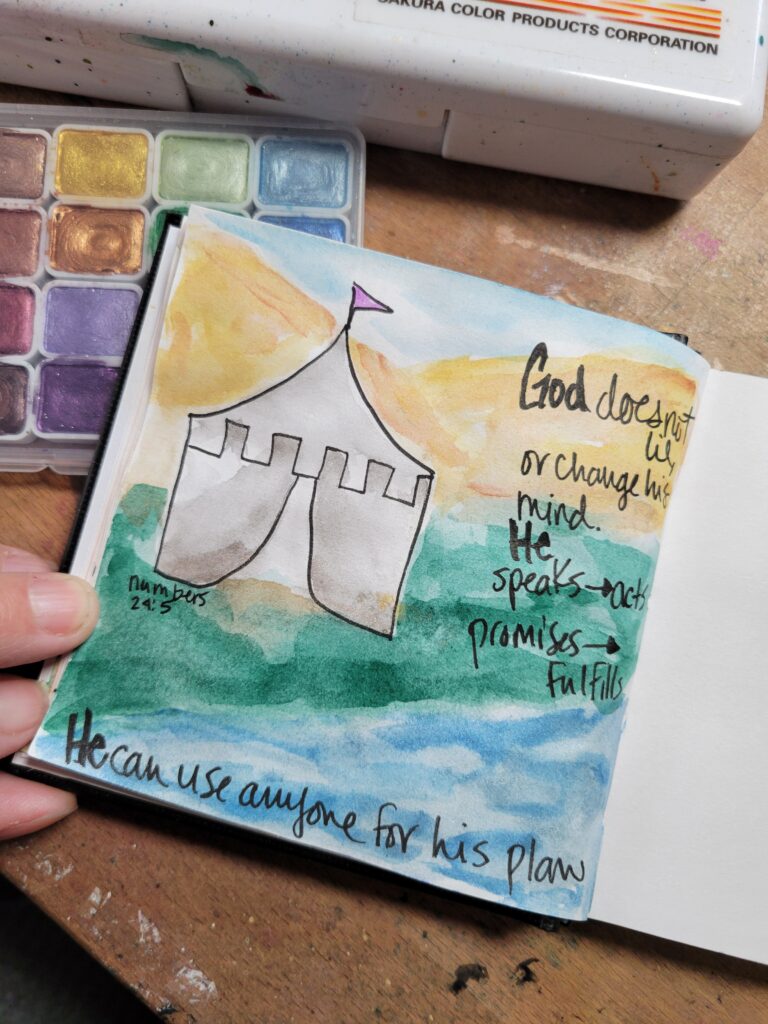 SAKURA COLOR PRODUCTS CORPORATION
God does not
lie,
or change his
mind.
He
speaks→acts
promises→
fulfills
numbers
24:5
He can use anyone for his plan